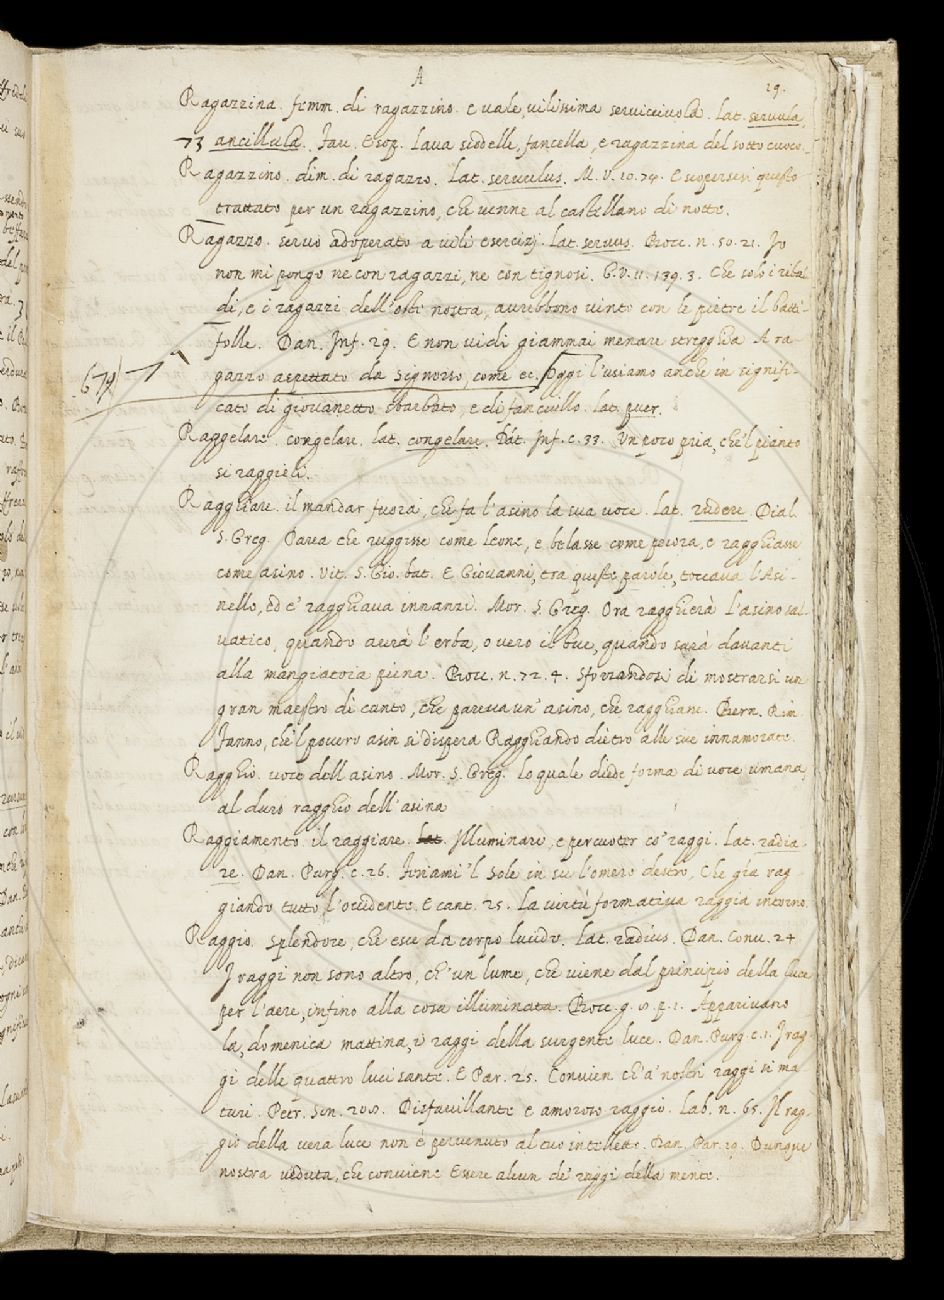 A
29.
Ragazzina. femm. di ragazzino. e vale, vilissima serviciuola. Lat. servula,
73 ancillula. Fav. Esop. Lava scodelle, fancella, e ragazzina del sotto cuoco.
Ragazzino. dim. di ragazzo. Lat. servulus. M. V. 10. 74. E scopersesi questo
trattato per un ragazzino, che venne al castellano di notte.
Ragazzo. servo adoperato a vili esercizj. Lat. servus. Bocc. n. 50. 21. Io
non mi pongo ne con ragazzi, ne con tignosi. G. V. 11. 139. 3. Che solo i ribal
di, e i ragazzi dell'oste nostra, avrebbono vinto con le pietre il batti-
folle. Dan. Inf. 29. E non vidi giammai menare stregghia A ra-
674 gazzo aspettato da Signorso, come ec. Oggi l'usiamo anche in signifi-
cato di giovanetto sbarbato, e di fanciullo. Lat. puer.
Raggelare. congelare. lat. congelare. Dāt. Inf. c. 33. Un poco pria, che'l pianto
si raggieli.
Ragghiare. il mandar fuora, che fa l'asino la sua voce. Lat. rudere. Dial.
S. Greg. Parea che ruggisse come leone, e belasse come pecora, e ragghiasse
come asino. Vit. S. Gio. bat. E Giovanni, tra queste parole, toccava l'Asi-
nello, ed e' ragghiava innanzi. Mor. S. Greg. Ora ragghierà l'asino sal-
vatico, quando avrà l'erba, o vero il bue, quando sarà davanti
alla mangiatoia piena. Bocc. n. 72. 4. Sforzandosi di mostrarsi un
gran maestro di canto, che pareva un' asino, che ragghiare. Bern. Rim.
Fanno, che'l povero asin si dispera Ragghiando dietro alle sue innamorate.
Ragghio. voce dell asino. Mor. S. Greg. lo quale diede forma di voce umana
al duro ragghio dell'asina
Raggiamento. il raggiare. Lat. Illuminare, e percuoter co' raggi. Lat. radia-
re. Dan. Purg. c. 26. Feriami 'l Sole in su l'omero destro, Che già rag-
giando tutto l'occidente. E cant. 25. La virtù formativa raggia intorno.
Raggio. Splendore, che esce da corpo lucido. Lat. radius. Dan. Conv. 24
I raggi non sono altro, ch'un lume, che viene dal principio della luce
per l'aere, infino alla cosa illuminata. Bocc. g. 8. p. 1. Apparivano
la, domenica mattina, i raggi della surgente luce. Dan. Purg. c. 1. I rag-
gi delle quattro luci sante. E Par. 25. Convien ch'a' nostri raggi si ma
turi. Petr. Son. 208. Disfavillante e amoroso raggio. Lab. n. 65. Il rag-
gio della vera luce non è pervenuto al tuo intelletto. Dan. Par. 19. Dunque
nostra veduta, che conviene Essere alcun de' raggi della mente.